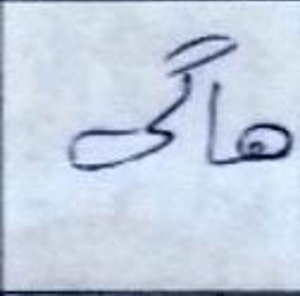 هاگی